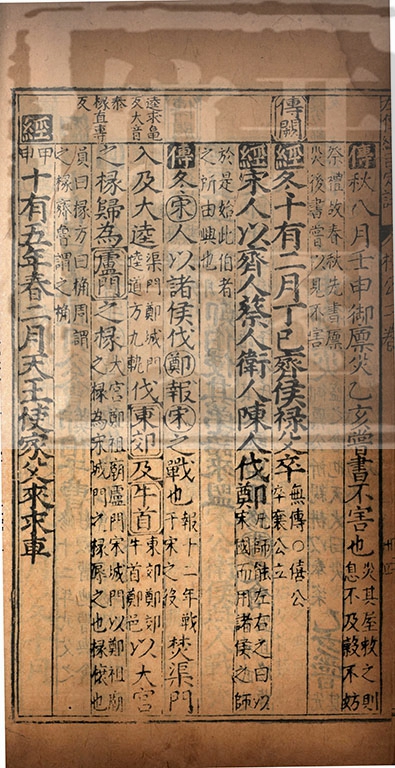 傳秋八月壬申御廩災乙亥甞書不害也災其屋救之則息不及穀不妨
祭禮故春秋先書廩災後書甞以見不害
傳闕
經冬十有二月丁巳齊侯禄父卒無傳〇僖公卒襄公立
經宋人以齊人蔡人衛人陳人伐鄭凡師能左右之曰以宋國而用諸侯之師
於是始此伯者之所由興也
傳冬宋人以諸侯伐鄭報宋之戰也報十二年戰于宋之役焚渠門
逵求龜反大音泰椽直專反
入及大逵渠門鄭城門逵道方九軌伐東郊及牛首東郊鄭郊牛首鄭邑以大宮
之椽歸為盧門之椽大宮鄭祖廟盧門宋城門以鄭祖廟之椽為宋城門之椽辱之也椽榱也
員曰椽方曰桷周謂之椽齊魯謂之桷
經甲申十有五年春二月天王使家父來求車